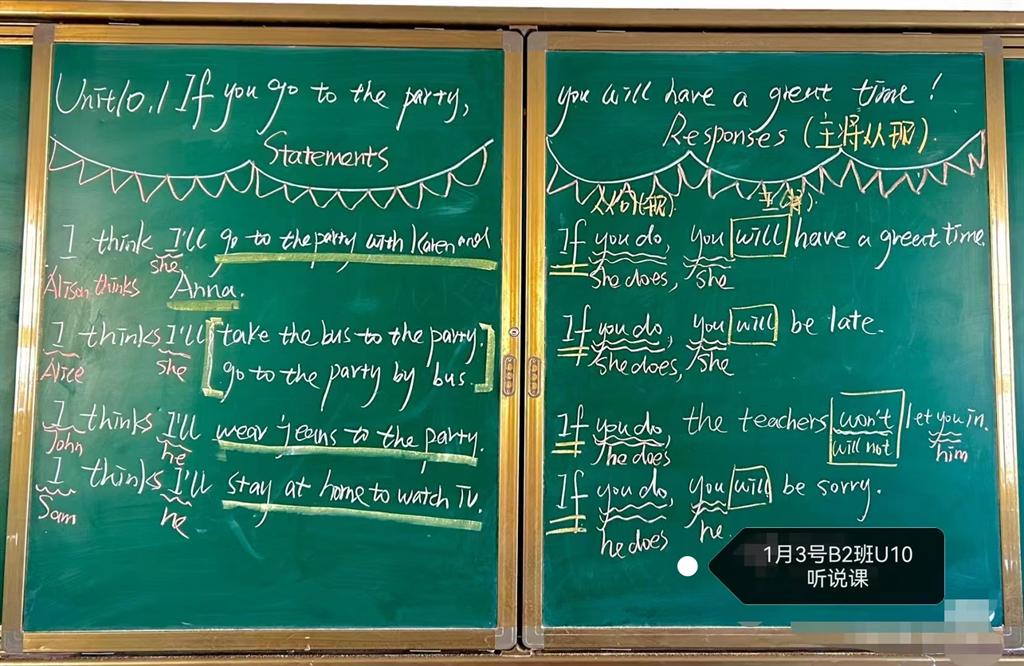 Unit10.1 If you go to the party,
Statements
I think I'll go to the party with Karen and
she
Alison thinks Anna.
I thinks I'll take the bus to the party.
Alice she
go to the party by bus.
I thinks I'll wear jeans to the party.
John he
I thinks I'll stay at home to watch TV.
Sam he
you will have a great time!
Responses (主将从现).
从句(现). 主(将).
If you do, you will have a great time.
she does, she
If you do, you will be late.
she does, she
If you do, the teachers won't let you in.
he does will not him
If you do, you will be sorry.
he does he.
1月3号B2班U10
听说课